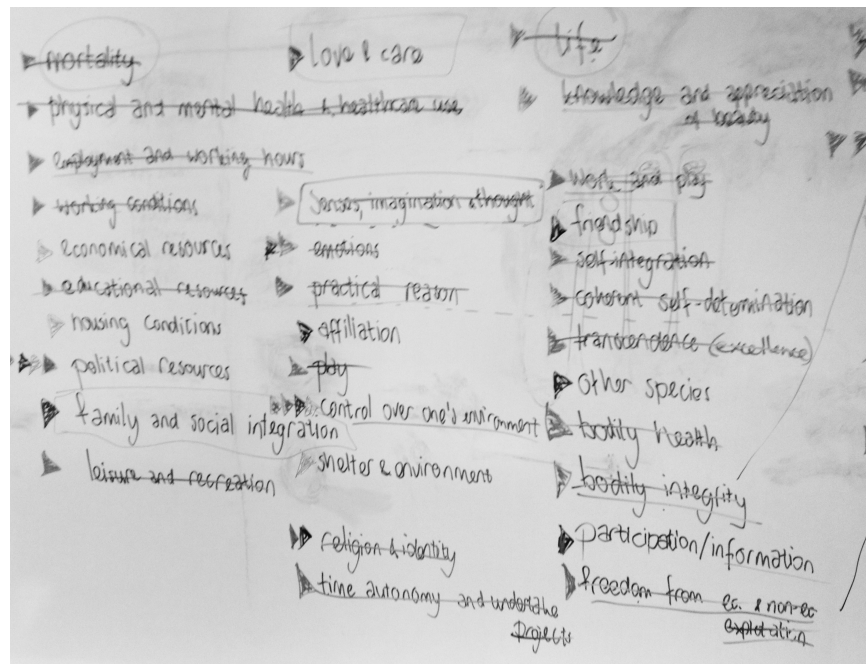 mortality
physical and mental health & healthcare use
employment and working hours
working conditions
economical resources
educational resources
housing conditions
political resources
family and social integration
leisure and recreation
love & care
senses, imagination & thought
emotions
practical reason
affiliation
play
control over one's environment
shelter & environment
religion & identity
time autonomy and undertake
projects
life
knowledge and appreciation
of beauty
work and play
friendship
self-integration
coherent self-determination
transcendence (excellence)
other species
bodily health
bodily integrity
participation/information
freedom from ec. & non-ec